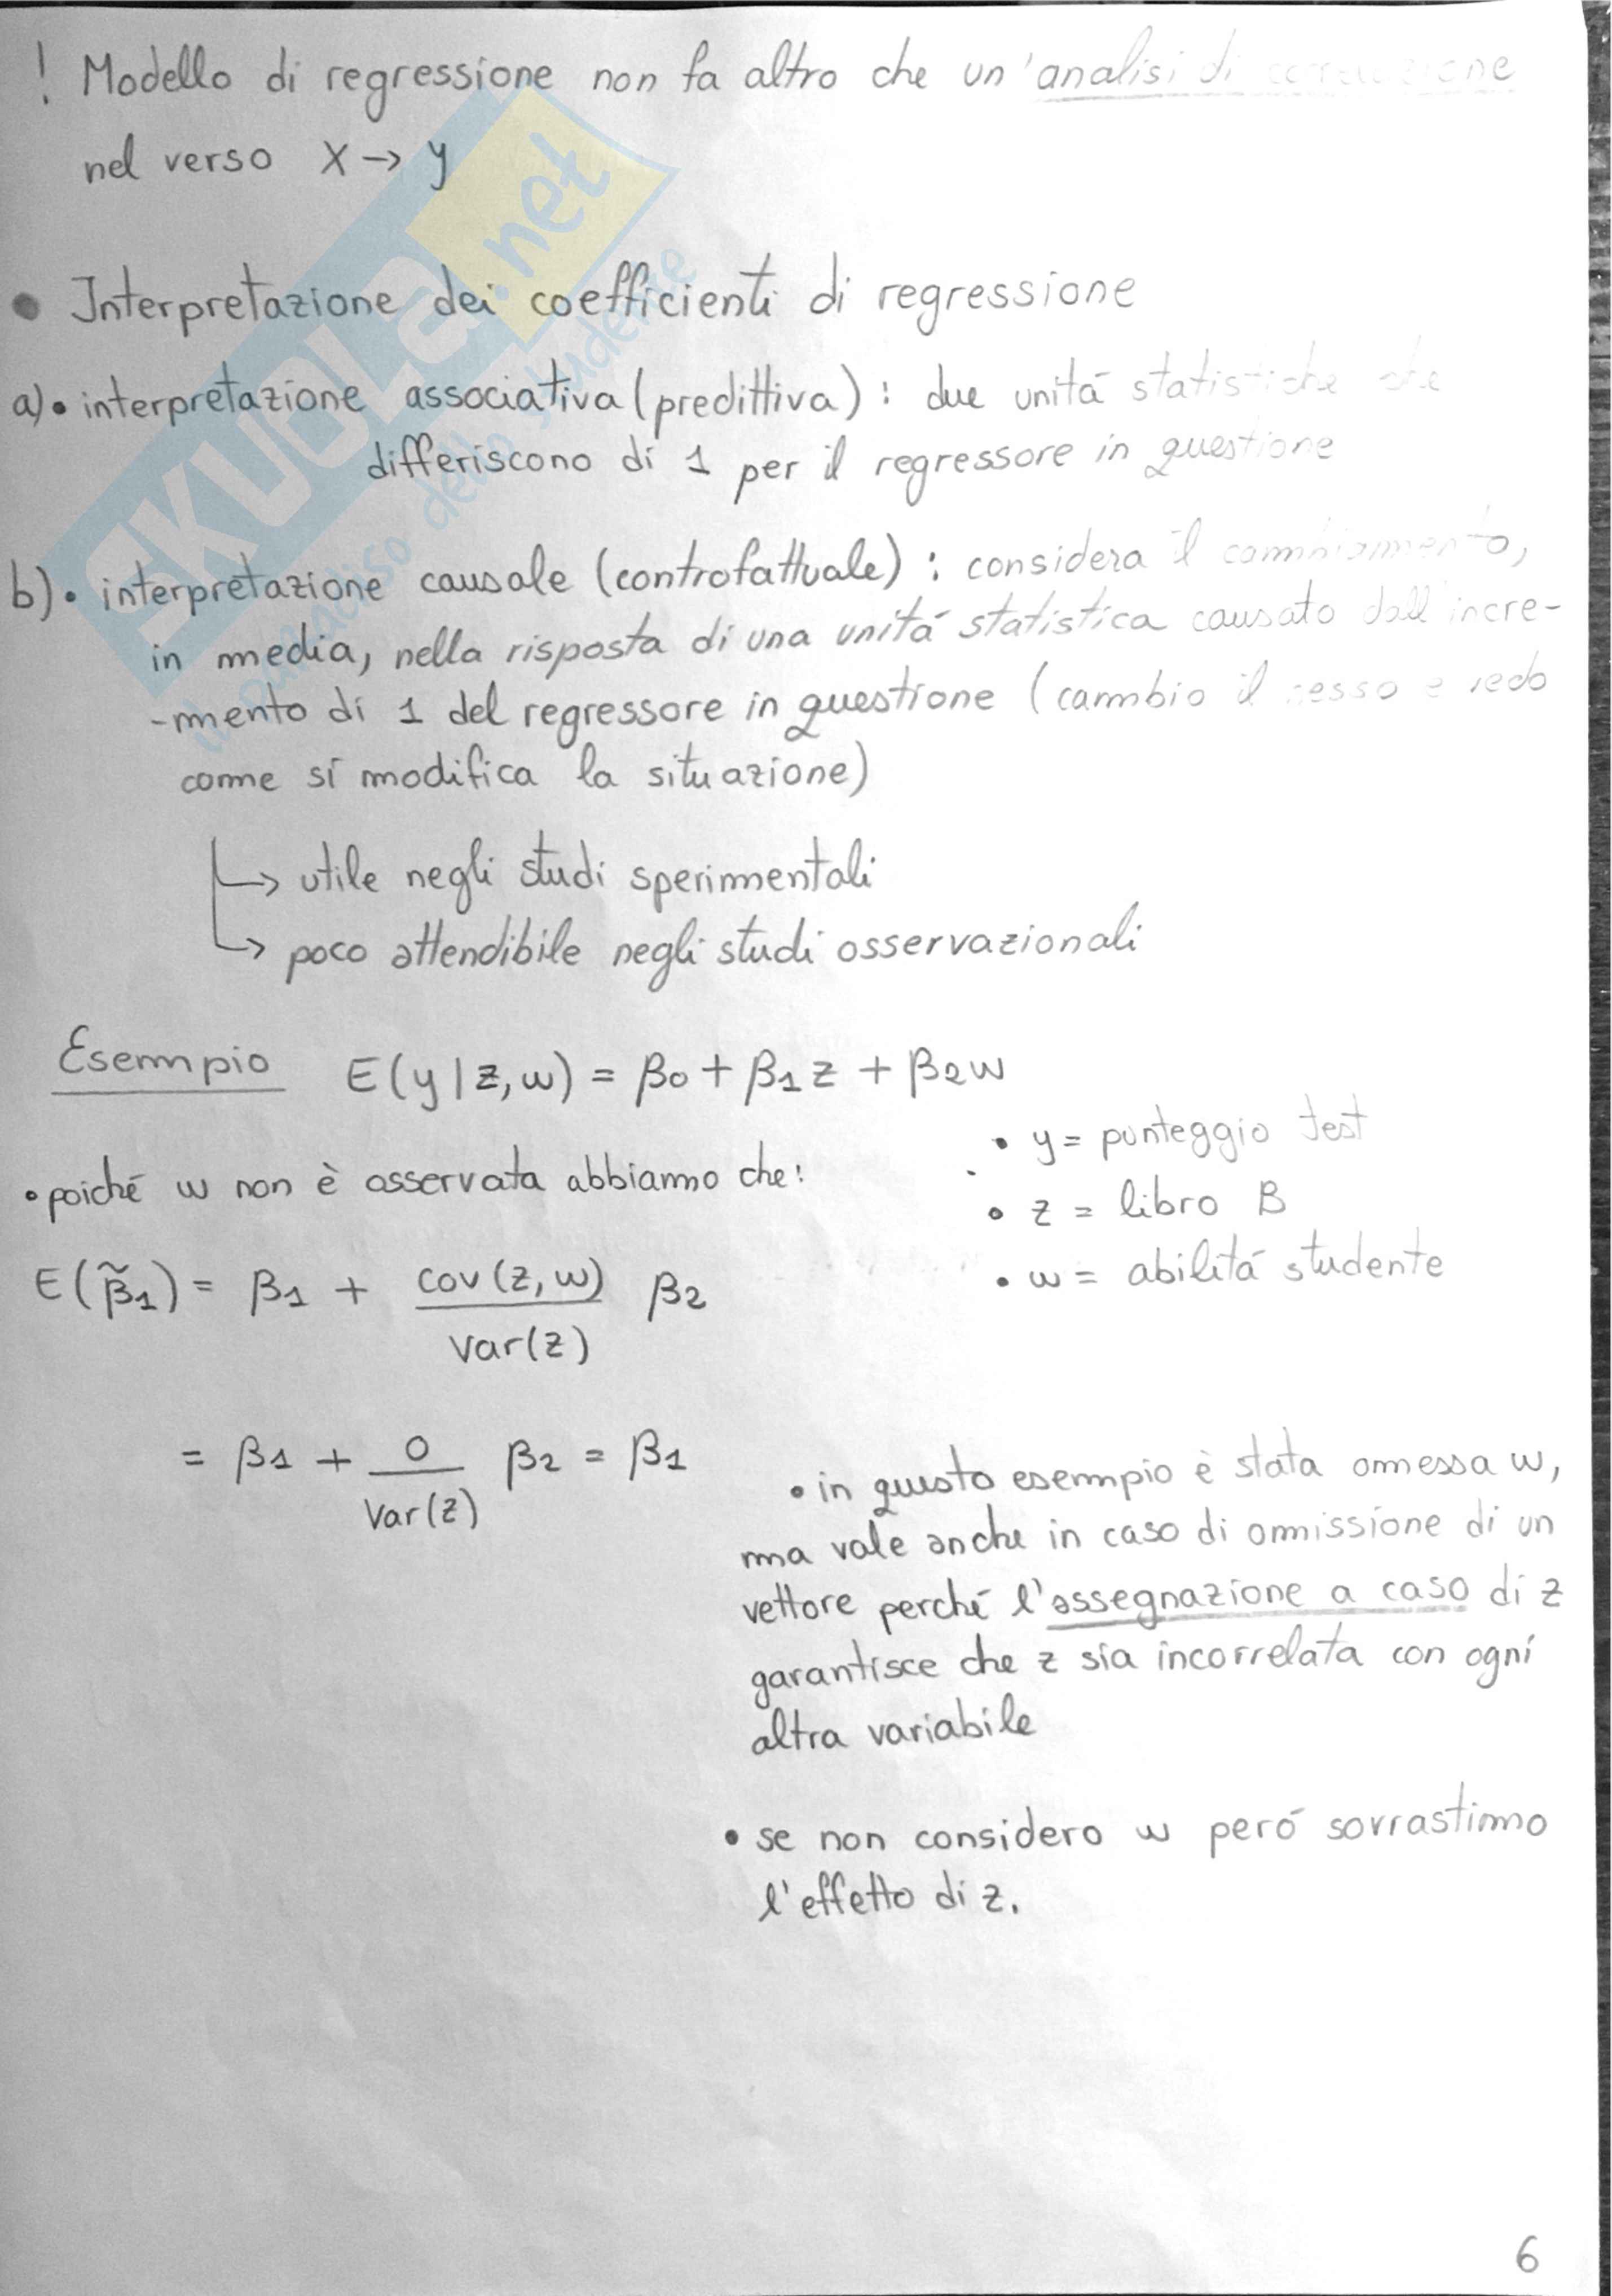 ! Modello di regressione non fa altro che un'analisi di correlazione
nel verso X → y
• Interpretazione dei coefficienti di regressione
a) • interpretazione associativa (predittiva) : due unitá statistiche che
differiscono di 1 per il regressore in questione
b) • interpretazione causale (controfattuale) : considera il cambiamento,
in media, nella risposta di una unitá statistica causato dall'incre-
-mento di 1 del regressore in questione (cambio il sesso e vedo
come si modifica la situazione)
↳ utile negli studi sperimentali
↳ poco attendibile negli studi osservazionali
Esempio E(y|z,w) = β0 + β1 z + β2 w
• y = punteggio test
• poiché w non è osservata abbiamo che:
• z = libro B
• w = abilitá studente
E(β̃1) = β1 + cov(z,w) / var(z) β2
= β1 + 0 / Var(z) β2 = β1
• in questo esempio è stata omessa w,
ma vale anche in caso di omissione di un
vettore perché l'assegnazione a caso di z
garantisce che z sia incorrelata con ogni
altra variabile
• se non considero w peró sovrastimo
l'effetto di z.
6
SKUOLA.net
il paradiso dello studente